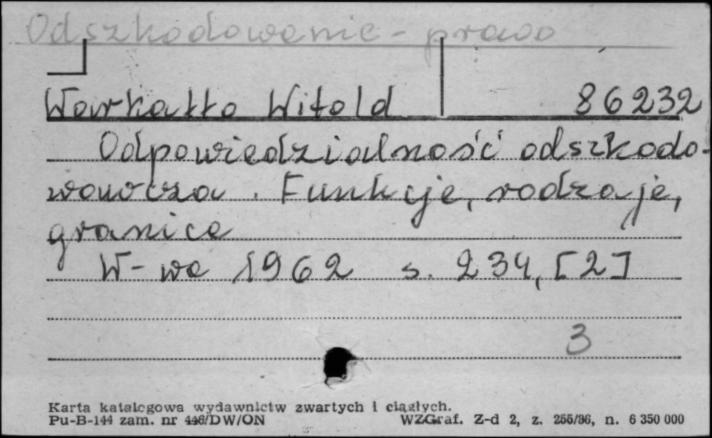 Odszkodowanie - prawo
Warkałło Witold 86232
Odpowiedzialność odszkodo-
wawcza. Funkcje, rodzaje,
granice
W-wa 1962 s. 234, [2]
3
Karta katalogowa wydawnictw zwartych i ciągłych.
Pu-B-144 zam. nr 446/DW/ON WZGraf. Z-d 2, z. 255/86, n. 6 350 000